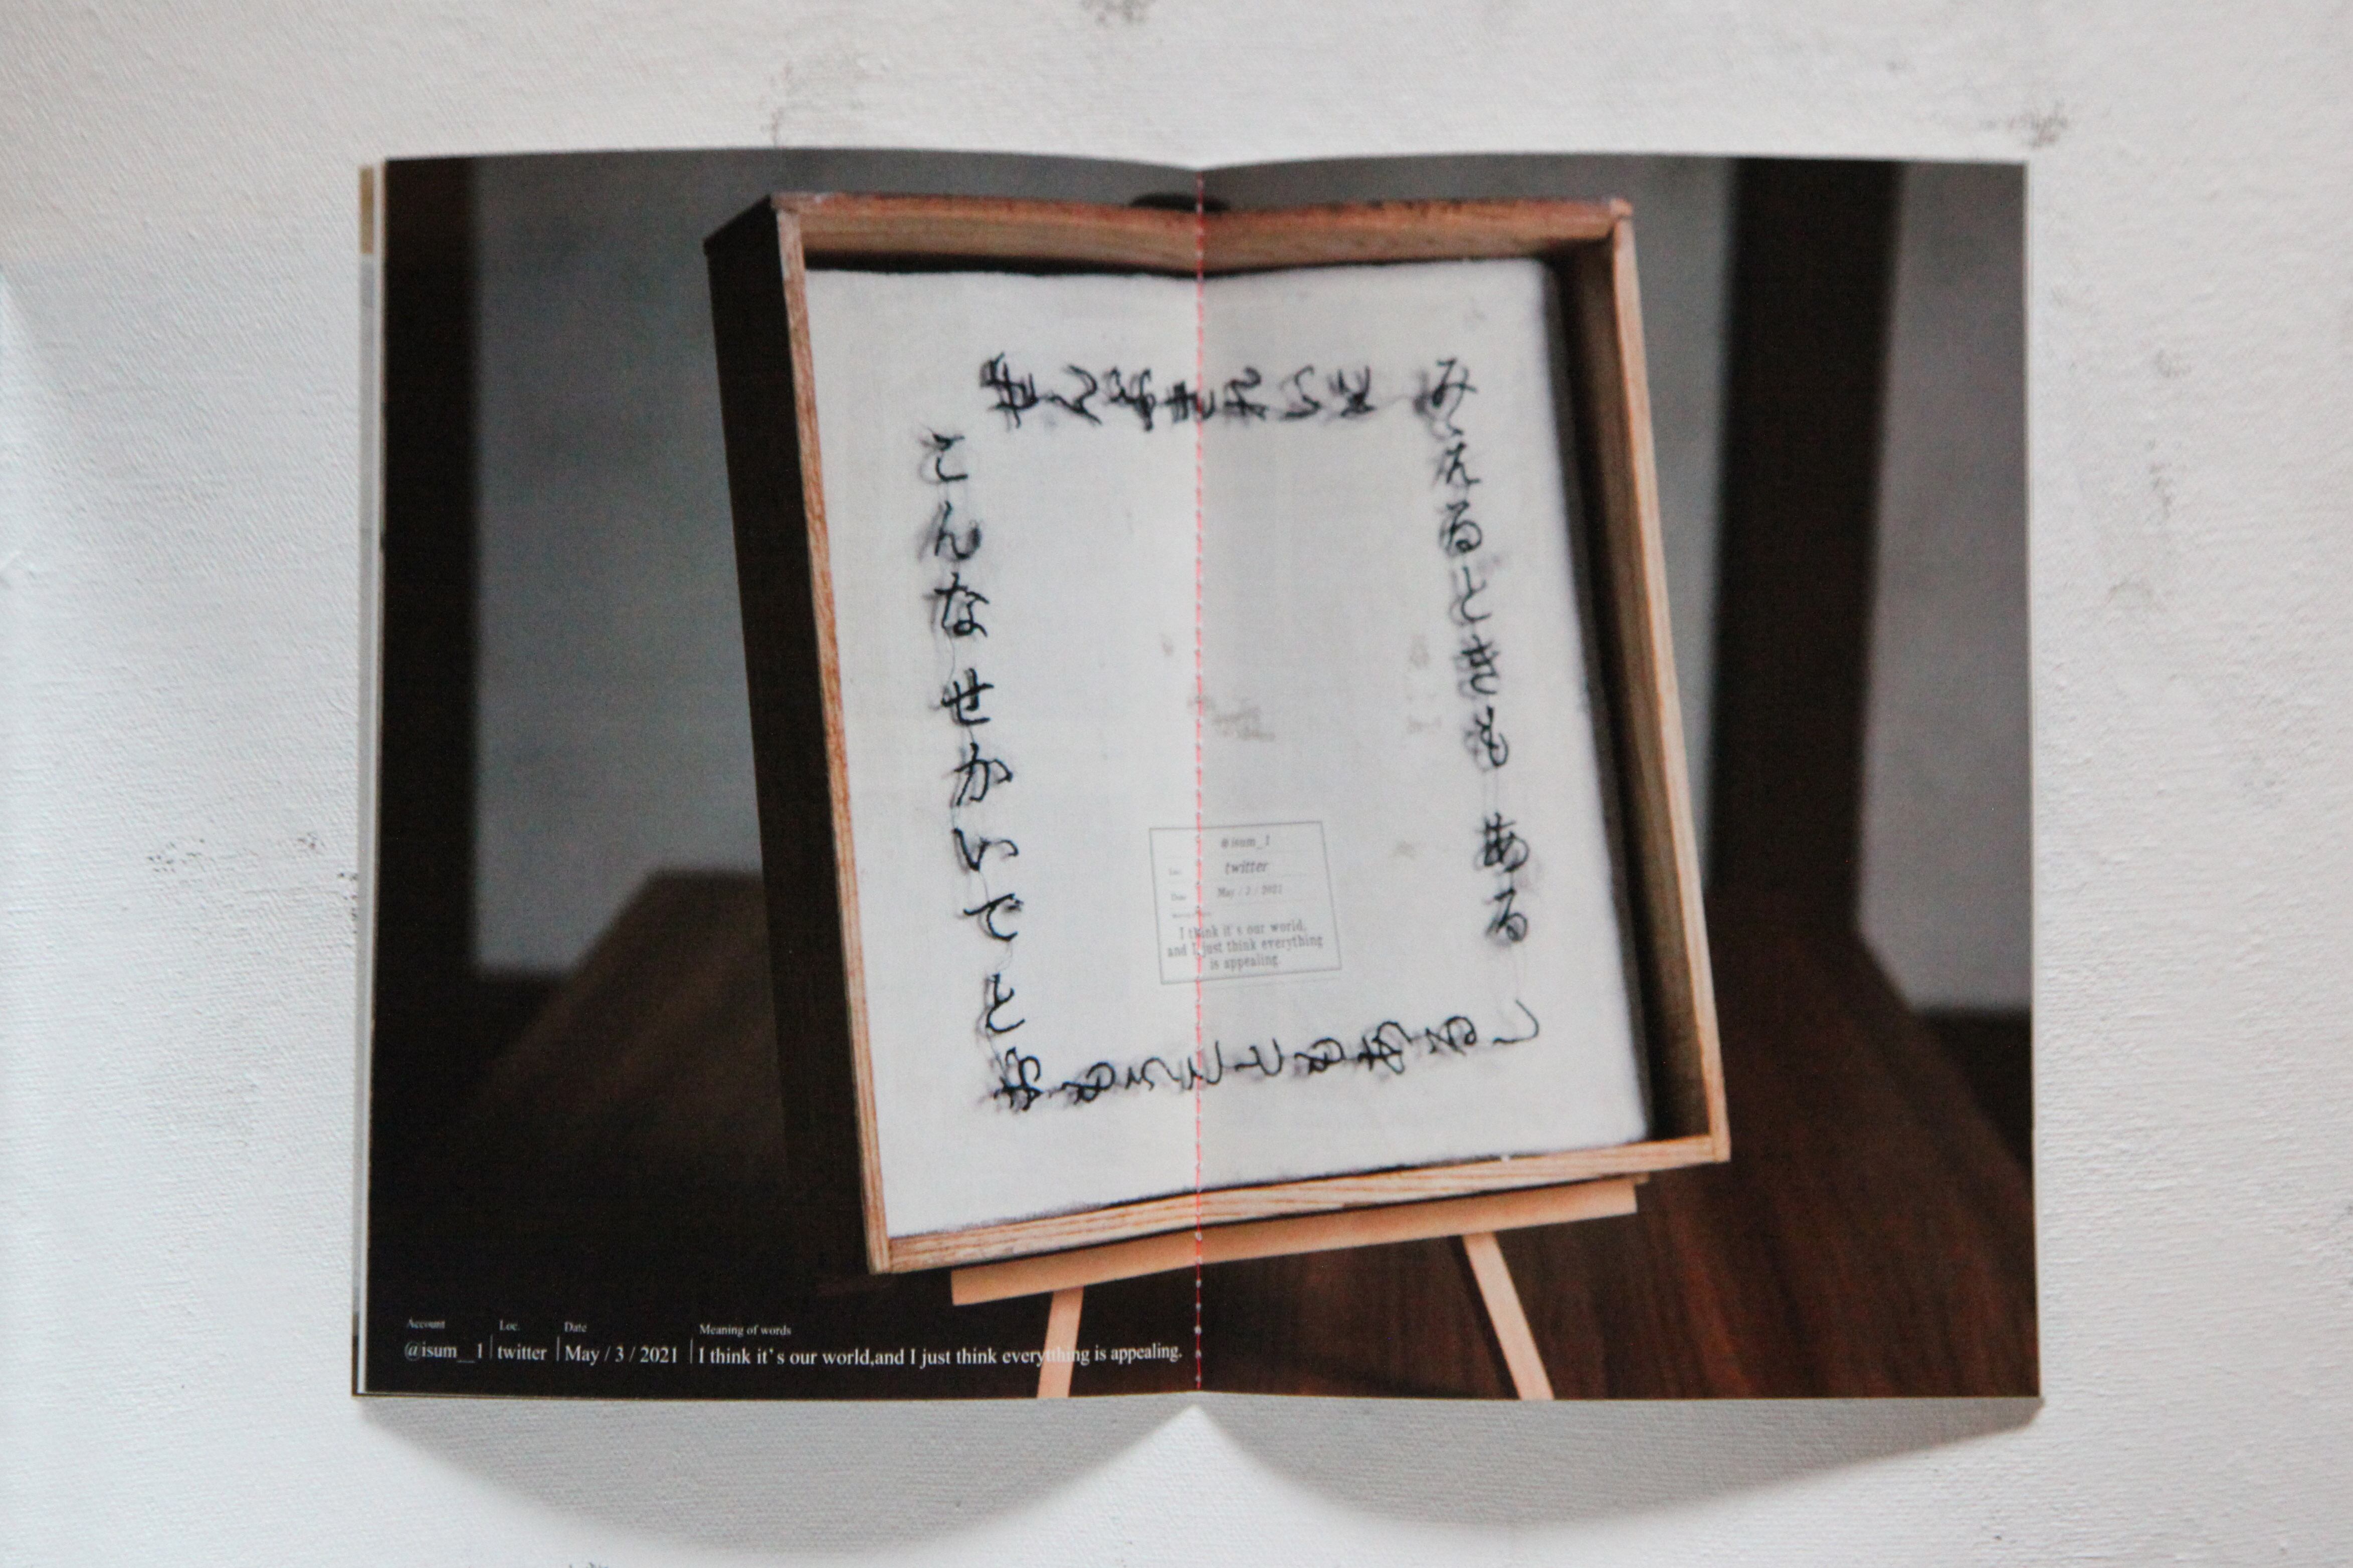 ぜんぶきれいに
みえるときも ある
こんな せかいで と
@isum_1
Loc.
twitter
Date
May / 3 / 2021
I think it's our world,
and I just think everything
is appealing.
Account Loc. Date Meaning of words
@isum__1 twitter May / 3 / 2021 I think it's our world,and I just think everything is appealing.